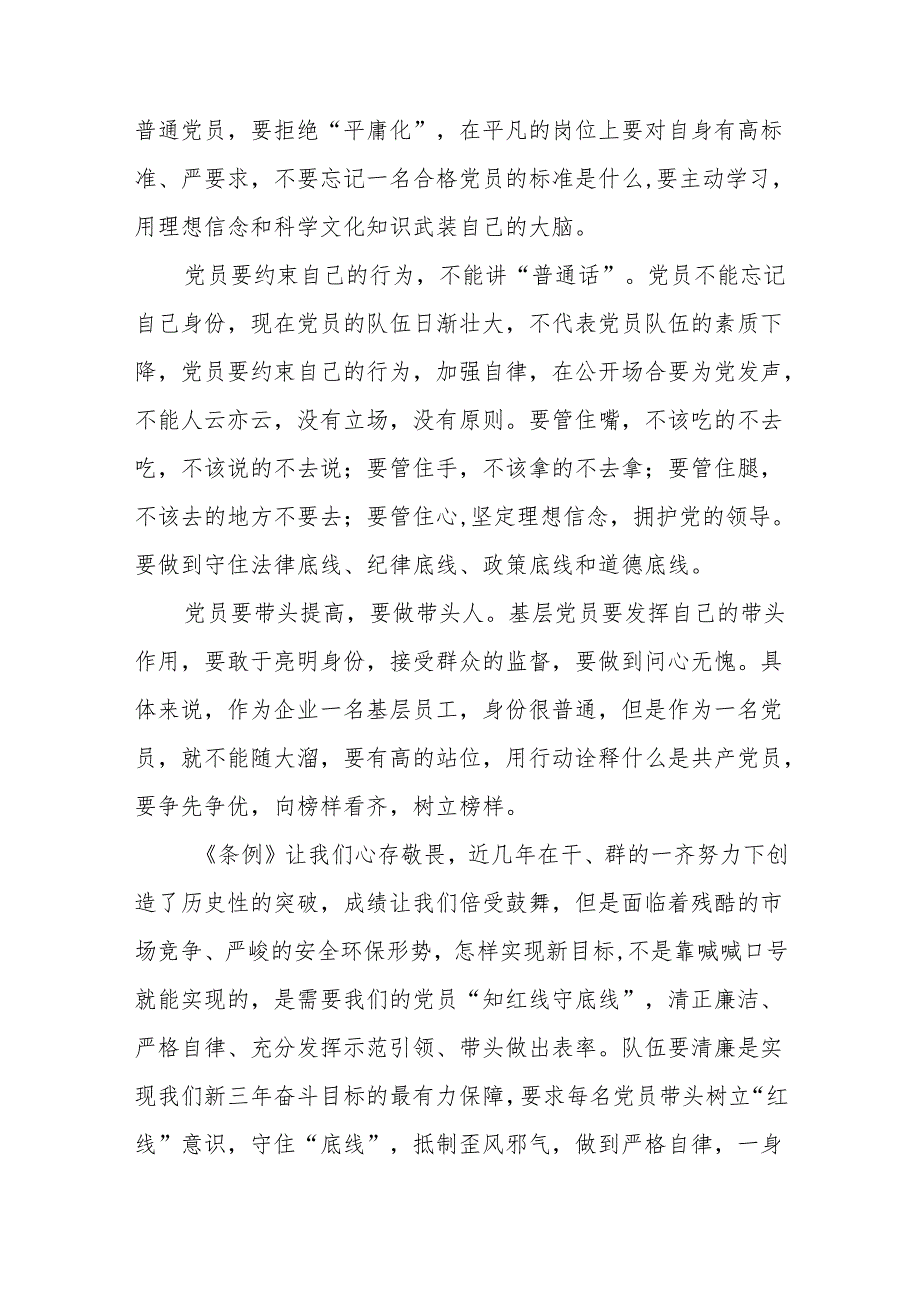 普通党员，要拒绝“平庸化”，在平凡的岗位上要对自身有高标
准、严要求，不要忘记一名合格党员的标准是什么,要主动学习，
用理想信念和科学文化知识武装自己的大脑。
党员要约束自己的行为，不能讲“普通话”。党员不能忘记
自己身份，现在党员的队伍日渐壮大，不代表党员队伍的素质下
降，党员要约束自己的行为，加强自律，在公开场合要为党发声，
不能人云亦云，没有立场，没有原则。要管住嘴，不该吃的不去
吃，不该说的不去说；要管住手，不该拿的不去拿；要管住腿，
不该去的地方不要去；要管住心,坚定理想信念，拥护党的领导。
要做到守住法律底线、纪律底线、政策底线和道德底线。
党员要带头提高，要做带头人。基层党员要发挥自己的带头
作用，要敢于亮明身份，接受群众的监督，要做到问心无愧。具
体来说，作为企业一名基层员工，身份很普通，但是作为一名党
员，就不能随大溜，要有高的站位，用行动诠释什么是共产党员，
要争先争优，向榜样看齐，树立榜样。
《条例》让我们心存敬畏，近几年在干、群的一齐努力下创
造了历史性的突破，成绩让我们倍受鼓舞，但是面临着残酷的市
场竞争、严峻的安全环保形势，怎样实现新目标,不是靠喊喊口号
就能实现的，是需要我们的党员“知红线守底线”，清正廉洁、
严格自律、充分发挥示范引领、带头做出表率。队伍要清廉是实
现我们新三年奋斗目标的最有力保障，要求每名党员带头树立“红
线”意识，守住“底线”，抵制歪风邪气，做到严格自律，一身